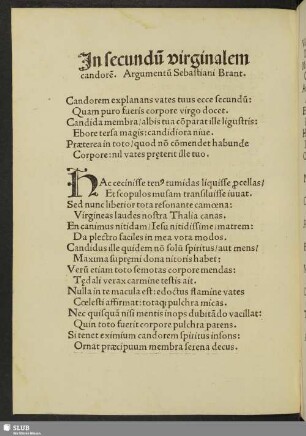 In secundū virginalem
candorē. Argumentū Sebastiani Brant.
Candorem explanans vates tuus ecce secundū:
Quam puro fueris corpore virgo docet.
Candida membra/albis tua cōparat ille ligustris:
Ebore tersa magis: candidiora niue.
Præterea in toto/quod nō cōmendet habunde
Corpore: nil vates preterit ille tuo.
HAc cecinisse tenꝰ tumidas liquisse, pcellas/
Et scopulos musam transiluisse iuuat.
Sed nunc liberior tota resonante camœna:
Virgineas laudes nostra Thalia canas.
En canimus nitidam/Iesu nitidissime: matrem:
Da plectro faciles in mea vota modos.
Candidus ille quidem nō solū spiritus/aut mens/
Maxima supremi dona nitoris habet:
Verū etiam toto semotas corpore mendas:
Tędali verax carmine testis ait.
Nulla in te macula est: edoctus flamine vates
Cœlesti affirmat: totaq; pulchra micas.
Nec quisquā nisi mentis inops dubitādo vacillat:
Quin toto fuerit corpore pulchra parens.
Si tenet eximium candorem spiritus insons:
Ornat præcipuum membra serena decus.
SLUB